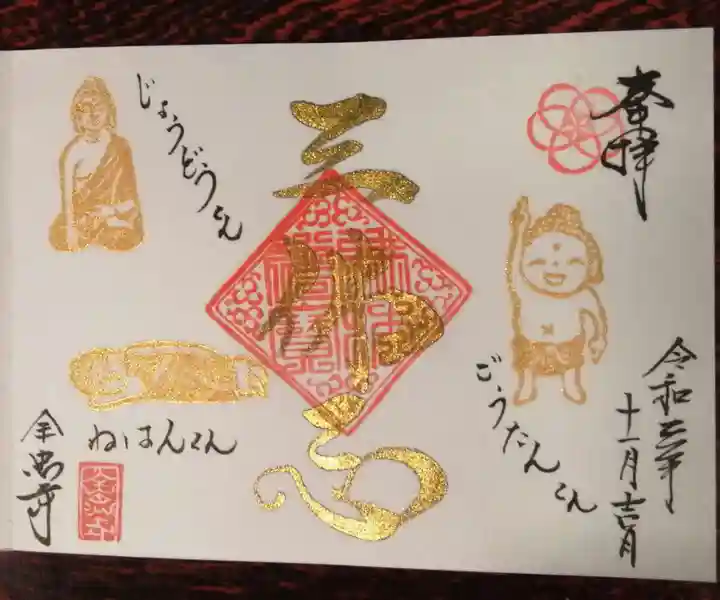 奉拝
令和三年
十一月吉日
ごうたんえ
三佛忌
じょうどうえ
ねはんえ
全忠寺